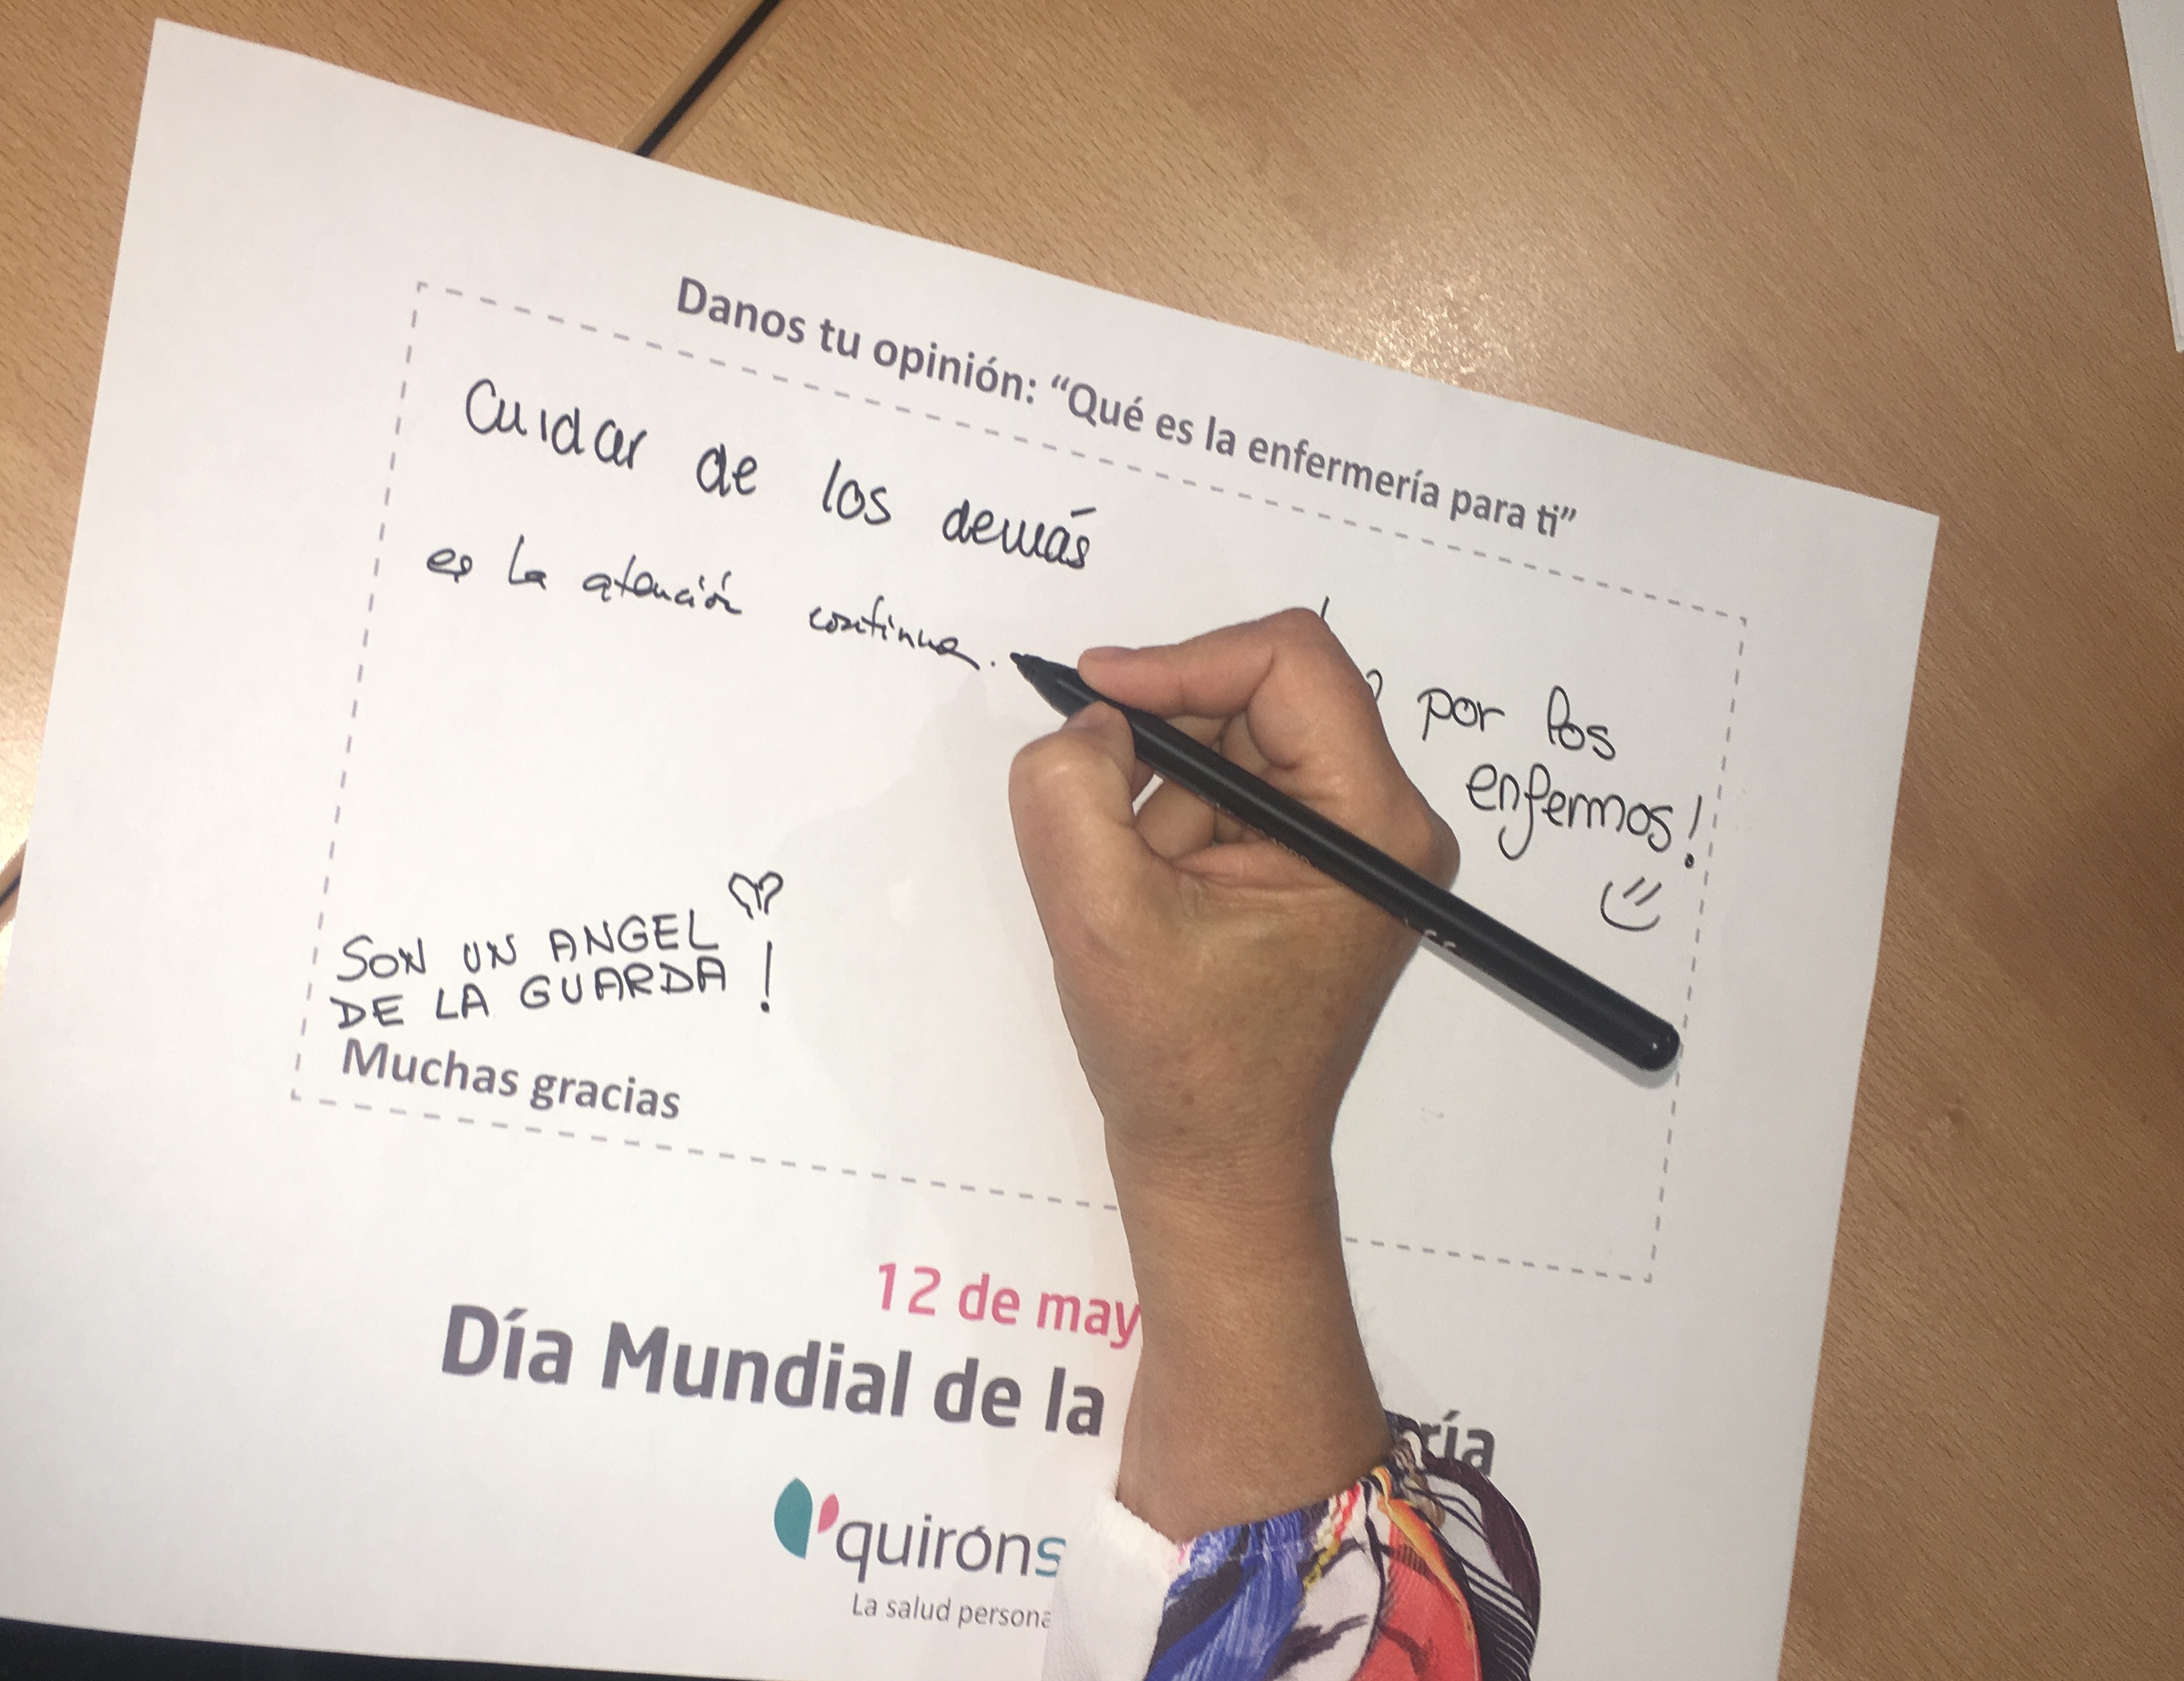 Danos tu opinión: “Qué es la enfermería para ti”
Cuidar de los demás
es la atención continua.
por los
enfermos!
SON UN ANGEL
DE LA GUARDA!
Muchas gracias
12 de may
Día Mundial de la ría
quiróns
La salud persona